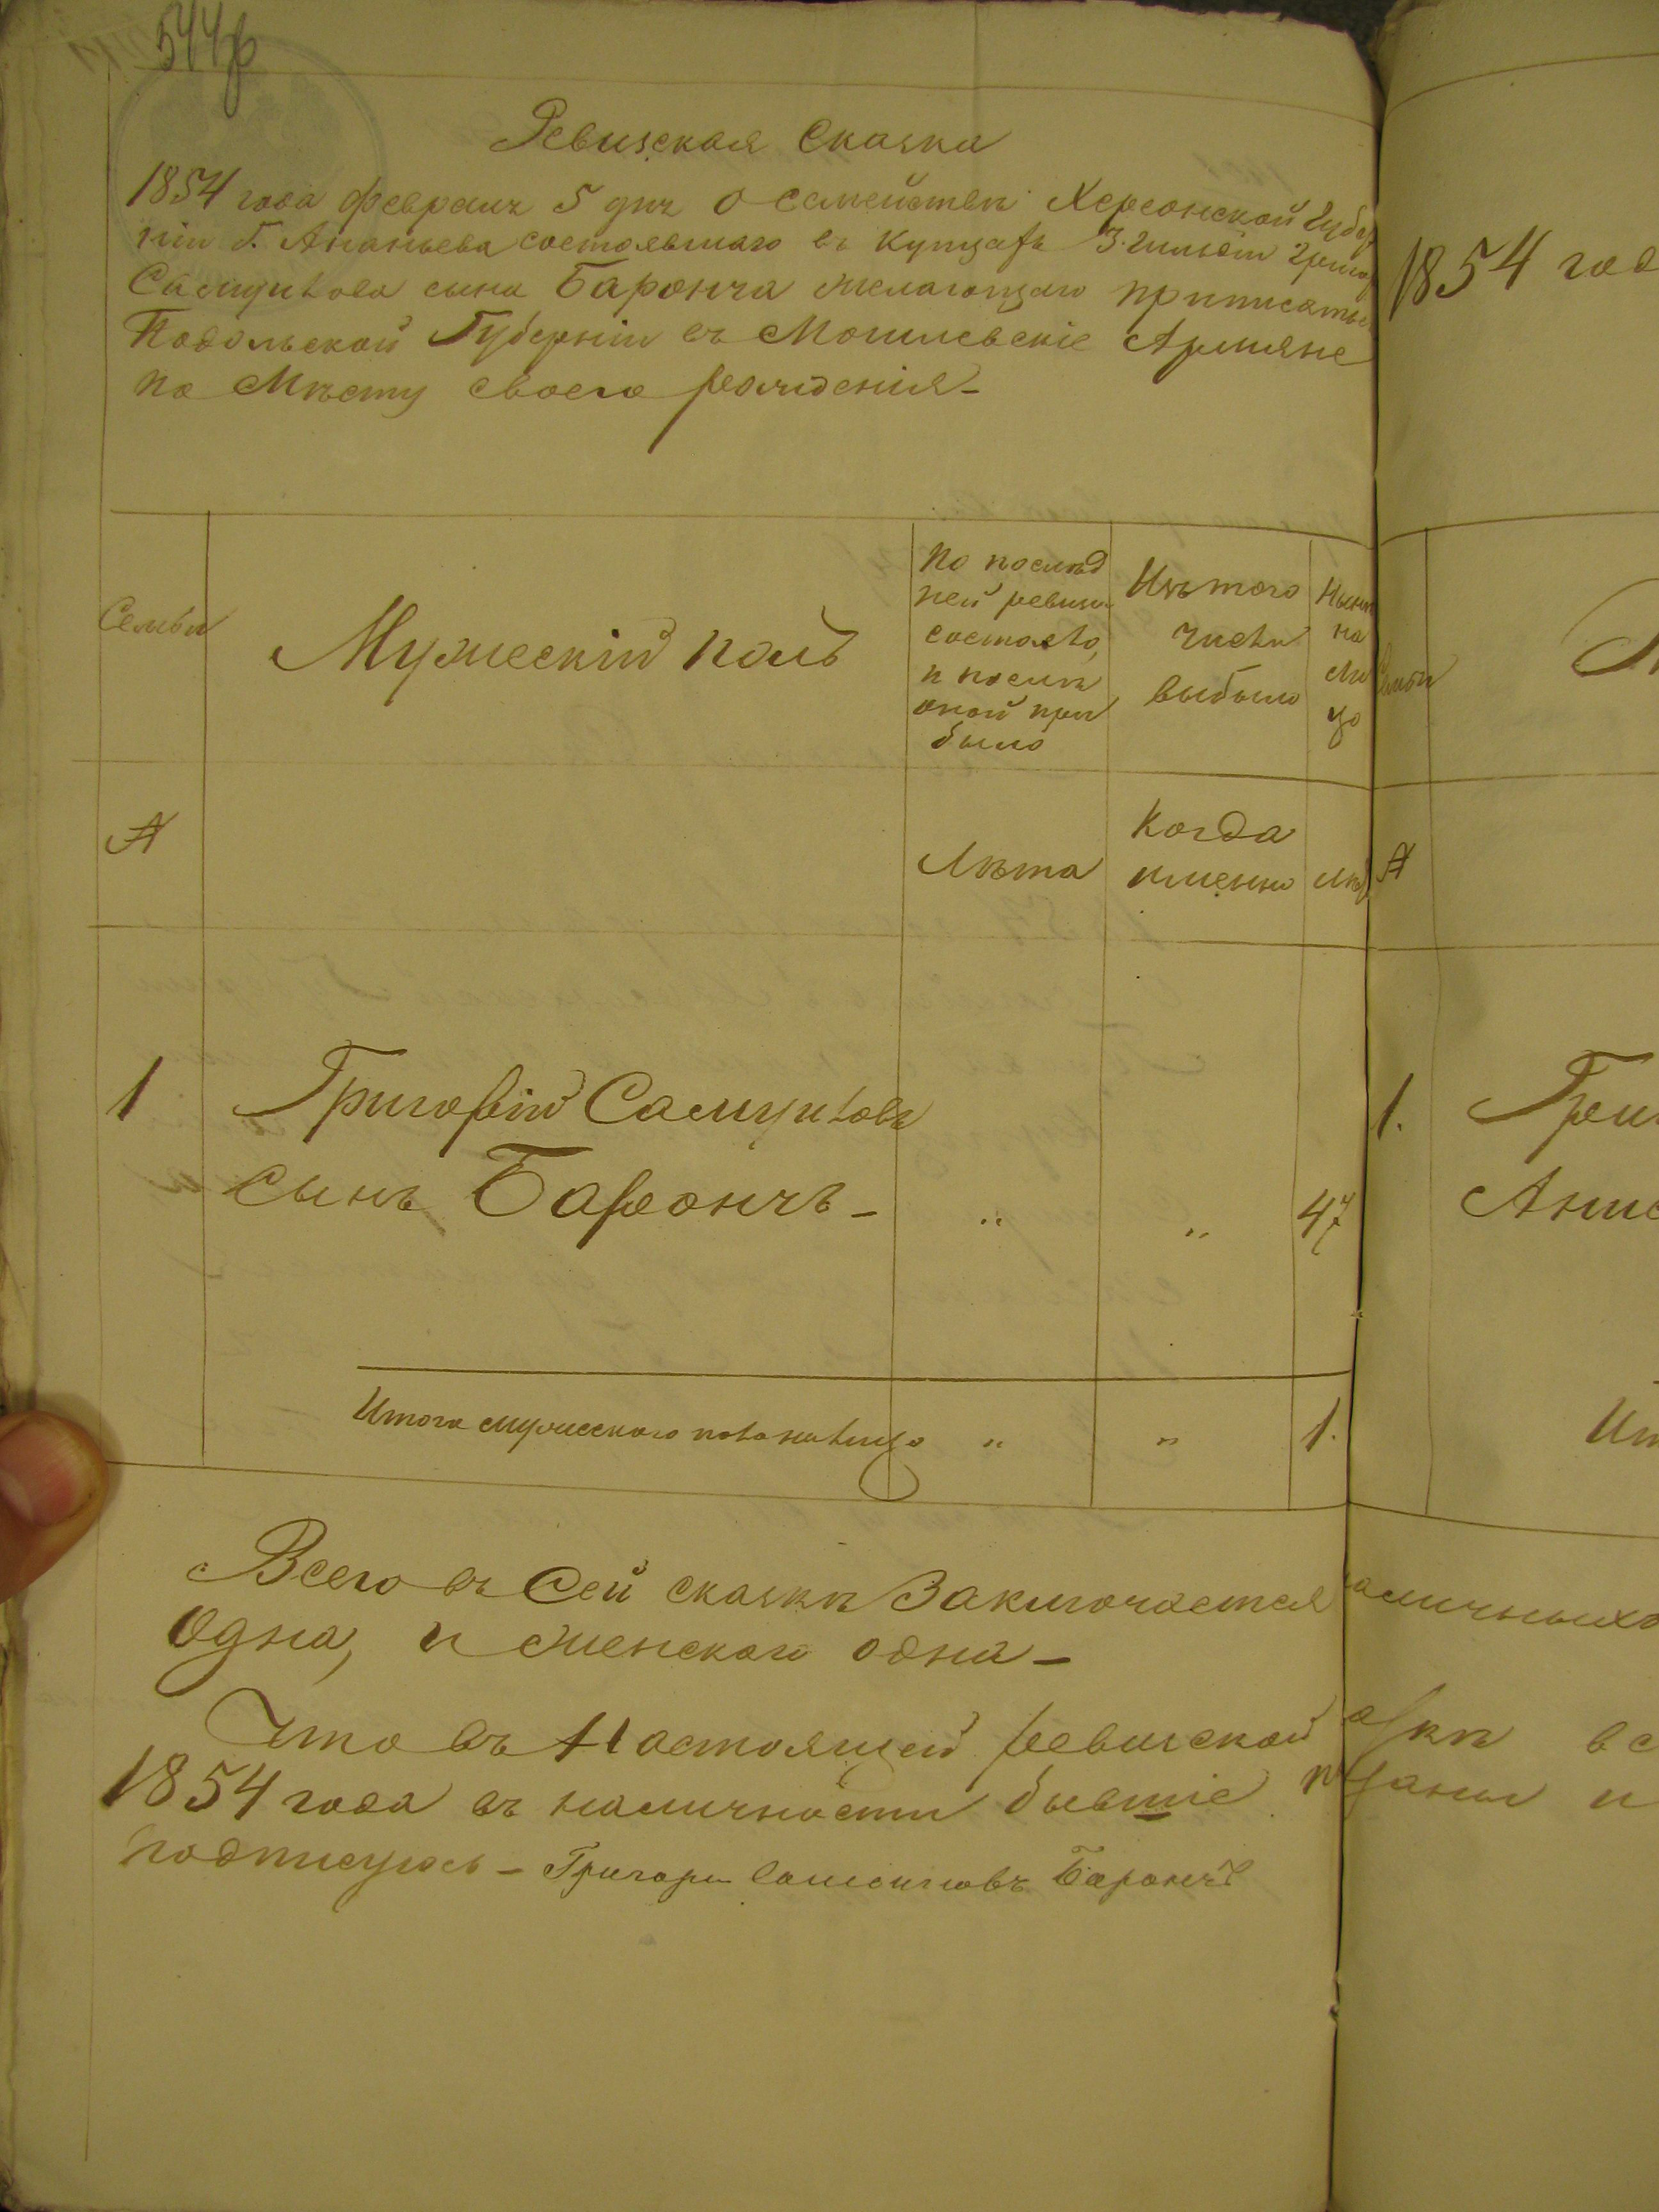 544об
Ревизская Сказка
1854 года февраля 5 дня о семействѣ Херсонской Губер
ніи Г. Ананьева состоявшаго въ Купцахъ 3. Гильдіи Григор
Самуилова сына Баронча желающаго приписаться
Подольской Губерніи въ Могилевскіе Армяне
по Мѣсту своего рожденія–
Семьи
Мужескій полъ
По послѣд
ней ревизіи
состояло,
и послѣ
оной при
было
Изъ того
числа
выбыло
Нынѣ
на
ли
цо
№
Лѣта
Когда
именно
лѣт
1
Григорій Самуиловъ
сынъ Барончъ –
„
„
47
Итого мужескаго пола налицо
„
„
1.
Всего въ Сей сказкѣ Заключается
Одна, и женскаго одна –
Что въ Настоящей ревизской
1854 года въ наличности бывшіе
подписуюсь – Григори Баронч
1854 год
Семьи
№
1.
Григ
Анне
Ит
аличныхъ
вс
и